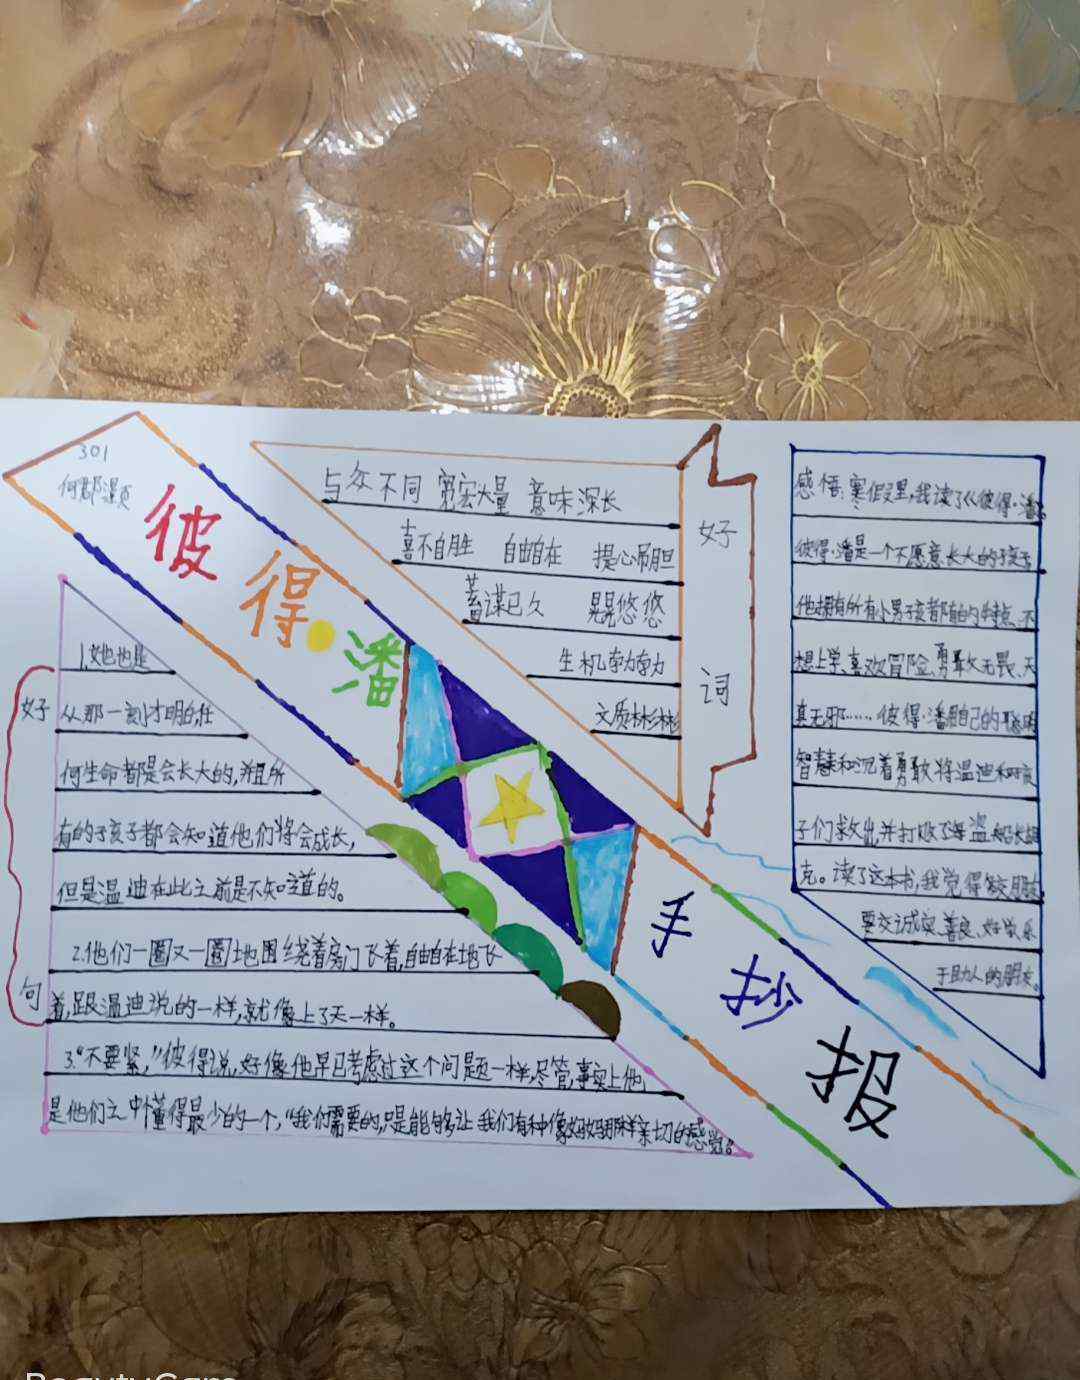 301
彼得·潘
手抄报
好词
与众不同 宽宏大量 意味深长
喜不自胜 自由自在 提心吊胆
蓄谋已久 晃晃悠悠
生机勃勃
文质彬彬
好句
1.她也是
从那一刻才明白,任
何生命都是会长大的,并且所
有的小孩子都会知道他们将会成长,
但是温迪在此之前是不知道的。
2.他们一圈又一圈地围绕着房门飞着,自由自在地飞
着,跟温迪说的一样,就像上了天一样。
3.“不要紧,”彼得说,好像他早已考虑过这个问题一样,尽管,事实上他
是他们之中懂得最少的一个,“我们需要的,只是能够让我们有种像妈妈那样亲切的感觉。
感悟:寒假里,我读了《彼得·潘》
彼得·潘是一个不愿意长大的孩子
他拥有所有小男孩都有的特点,不
想上学、喜欢冒险、勇敢无畏、天
真无邪……彼得·潘用自己的聪明
智慧和沉着勇敢将温迪和孩
子们救出,并打败了海盗船长胡
克。读了这本书,我觉得交朋友
要交诚实、善良、好学、乐
于助人的朋友。
BeautyCam